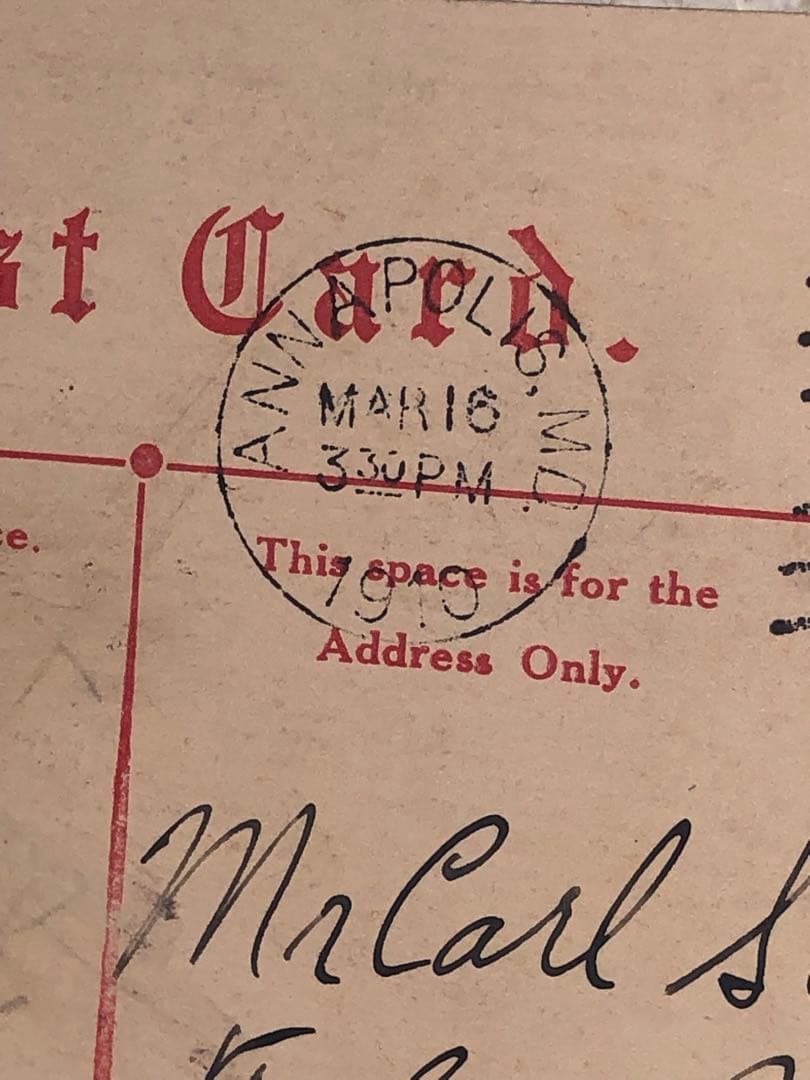 st Card.
ANNAPOLIS, MD.
MAR 16
3 30 PM
ce.
This space is for the
Address Only.
Mr Carl S